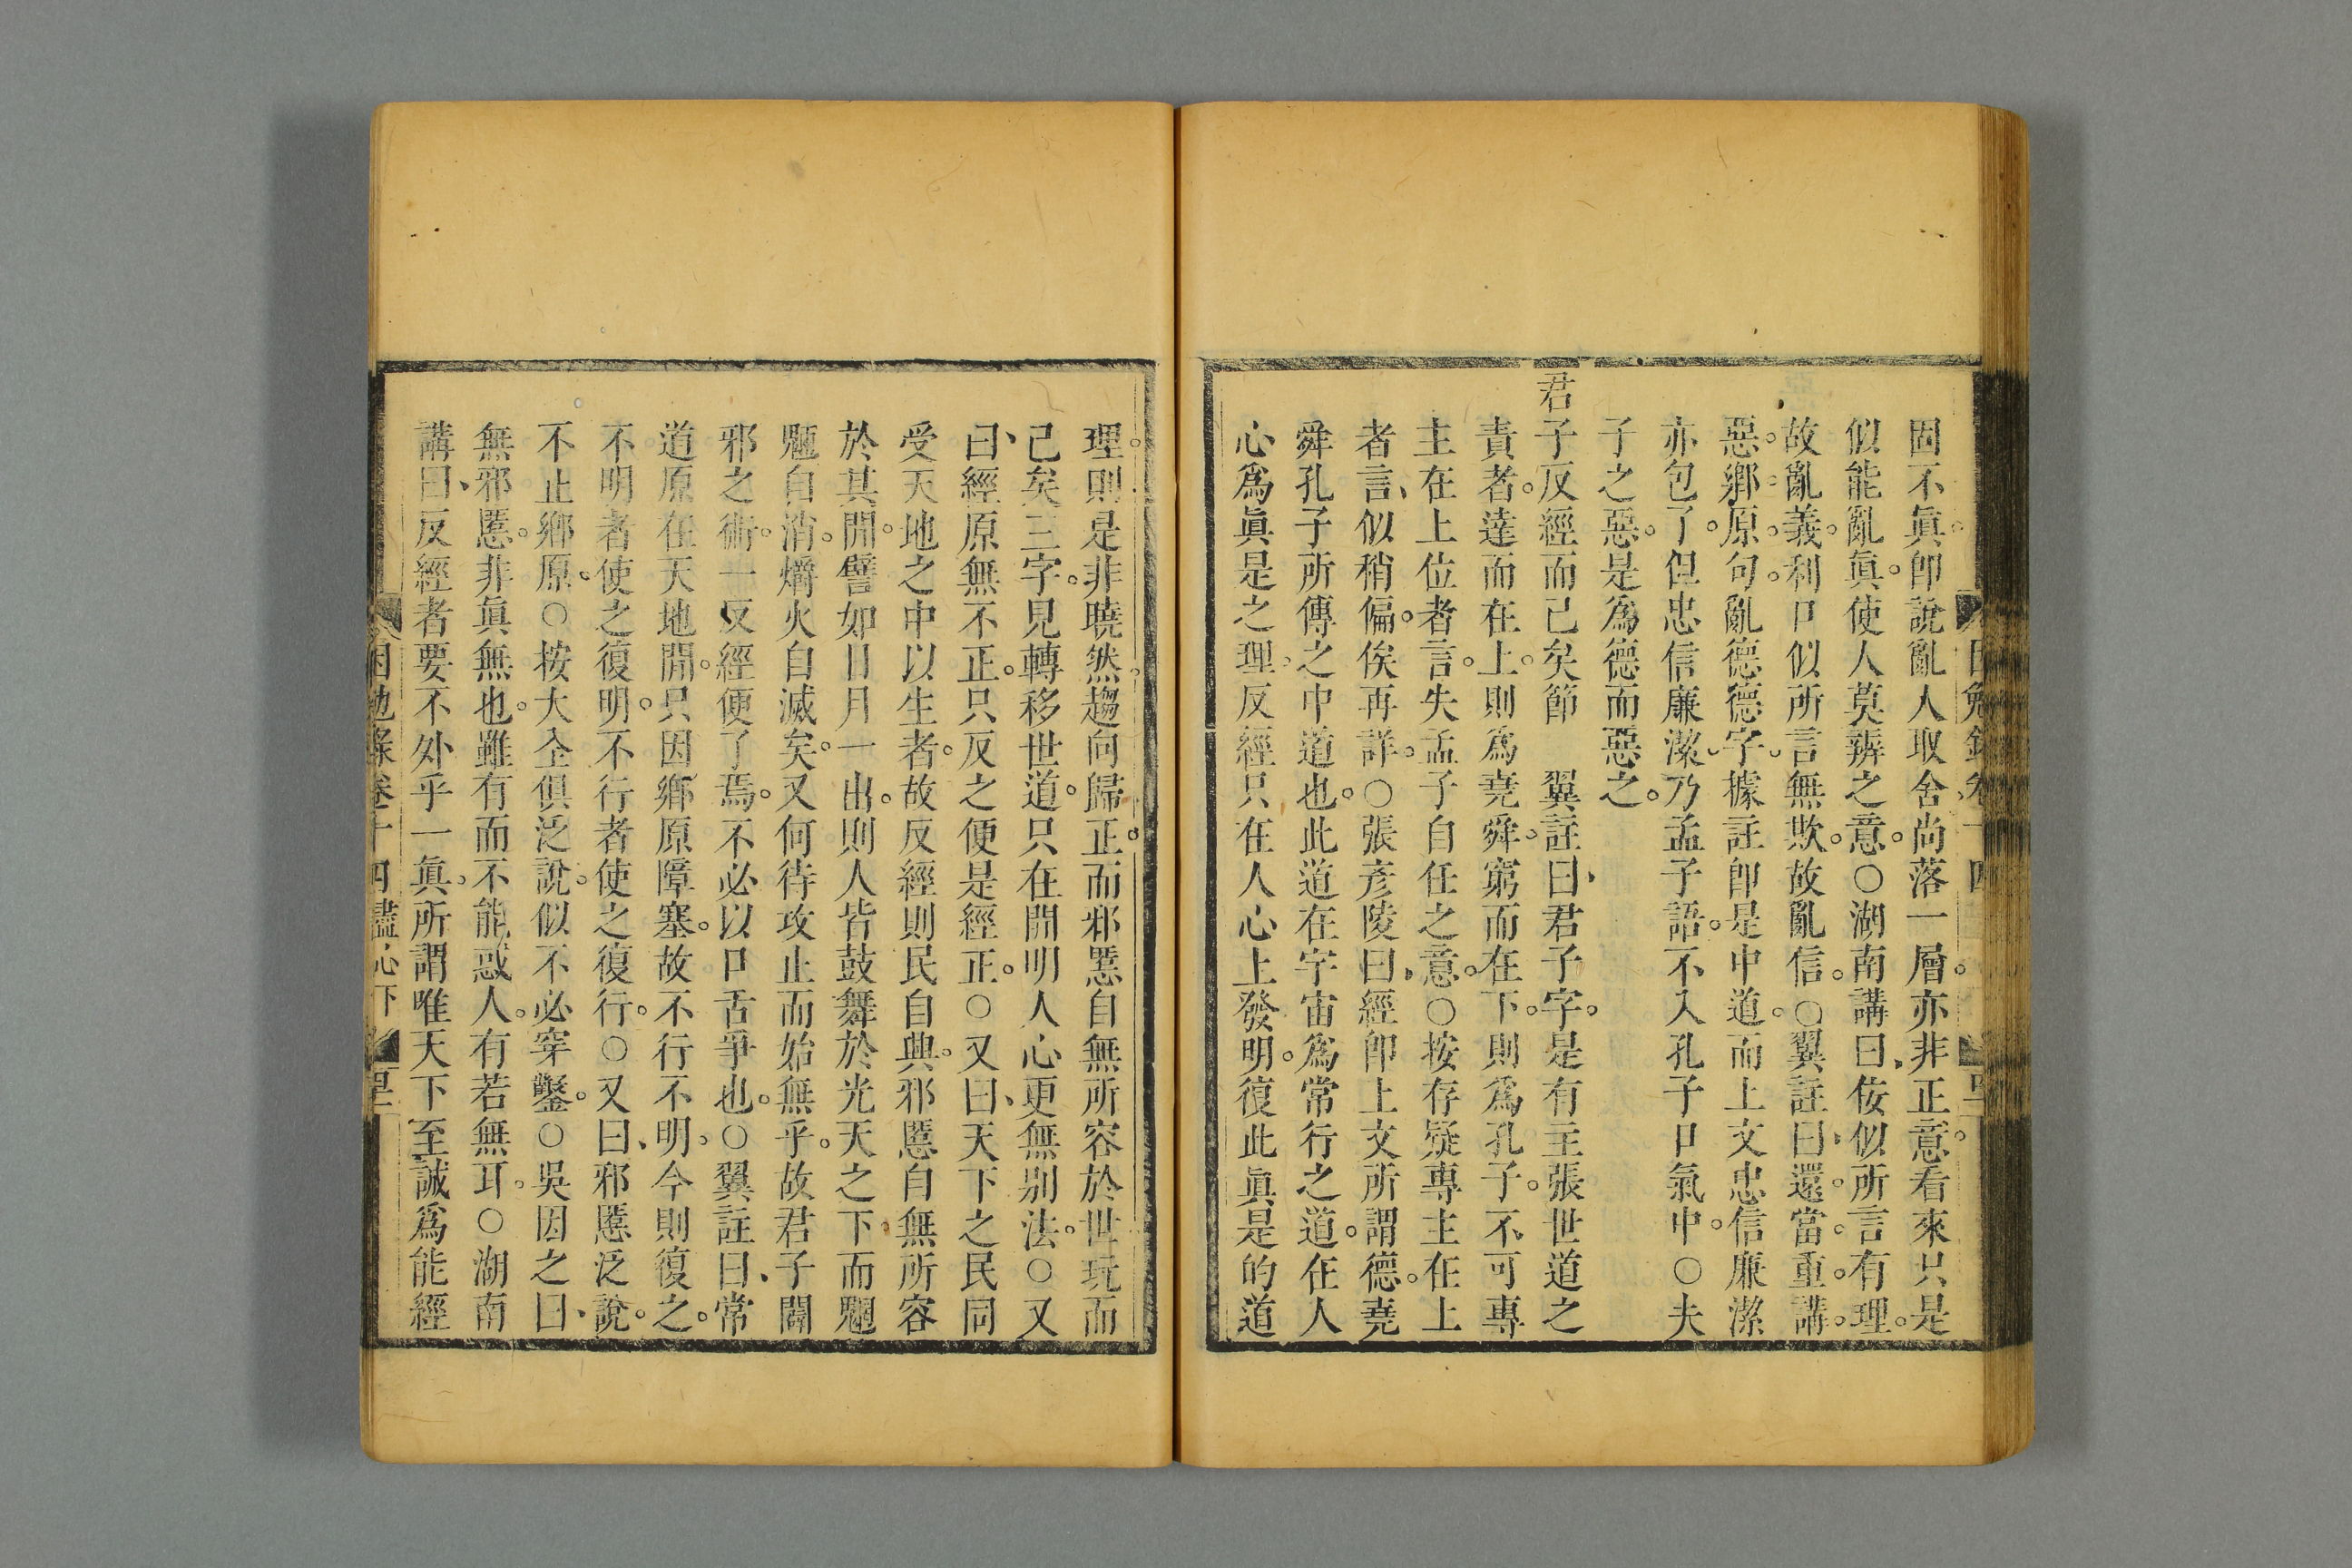 因不眞卽說亂人取舍尚落一層。亦非正意。看來只是
似能亂眞。使人莫辨之意。○湖南講曰、侫似所言有理。
故亂義。利口似所言無欺。故亂信。○翼註曰、還當重講。
惡鄉原句。亂德德字據註卽是中道。而上文忠信廉潔
亦包了。但忠信廉潔乃孟子語。不入孔子口氣中。○夫
子之惡。是爲德而惡之。
君子反經而已矣節　翼註曰、君子字。是有主張世道之
責者。達而在上。則爲堯舜。窮而在下。則爲孔子。不可專
主在上位者言。失孟子自任之意。○按存疑專主在上
者言、似稍偏。俟再詳。○張彥陵曰、經卽上文所謂德。堯
舜孔子所傳之中道也。此道在宇宙爲常行之道。在人
心爲眞是之理。反經只在人心上發明。復此眞是的道
理。則是非曉然。趨向歸正。而邪慝自無所容於世玩而
已矣三字。見轉移世道。只在開明人心更無別法。○又
曰、經原無不正。只反之便是經正。○又曰、天下之民同
受天地之中以生者。故反經則民自興。邪慝自無所容
於其間。譬如日月一出。則人皆鼓舞於光天之下而魍
魎自消。爝火自滅矣。又何待攻止而始無乎。故君子闢
邪之術。一反經便了焉。不必以口舌爭也。○翼註曰、常
道原在天地間。只因鄉原障塞。故不行不明。今則復之。
不明者使之復明。不行者使之復行。○又曰、邪慝泛說。
不止鄉原。○按大全俱泛說。似不必穿鑿。○吳因之曰、
無邪慝。非眞無也。雖有而不能惑人。有若無耳。○湖南
講曰、反經者要不外乎一眞。所謂唯天下至誠爲能經
困勉錄卷十四盡心下